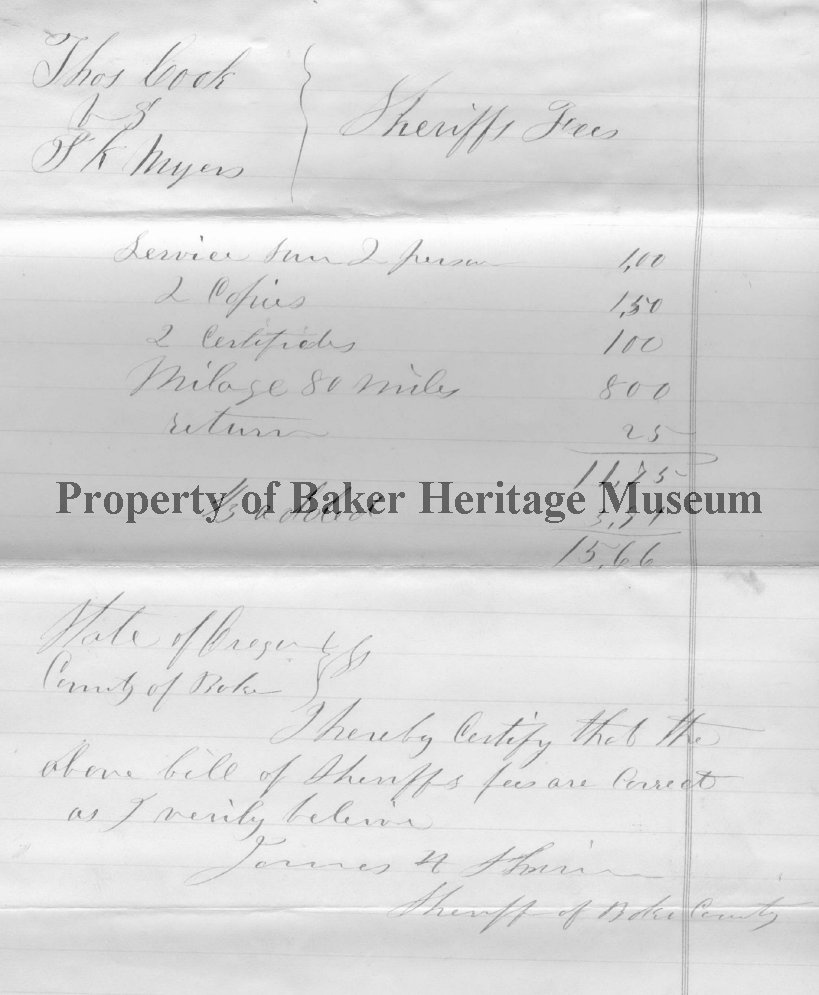 Thos Cook
vs
S K Myers
Sheriffs Fees
Service sum 2 person 1,00
2 Copies 1,50
2 Certificates 100
Milage 80 miles 800
return 25
11,75
Property of Baker Heritage Museum
1/3 added
15,66
State of Oregon } ss
County of Baker
I hereby Certify that the
above bill of Sheriffs fees are Correct
as I verily beleive
James H
Sheriff of Baker County